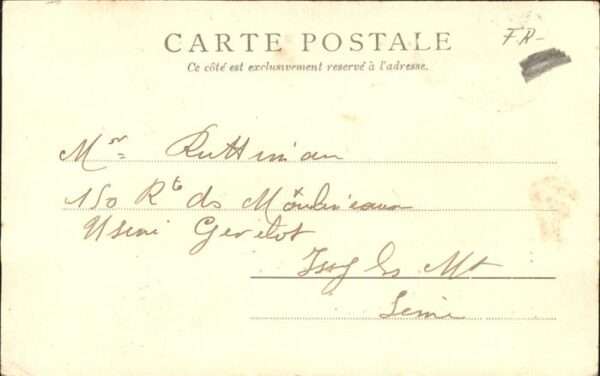 CARTE POSTALE
FR-
Ce côté est exclusivement reservé à l'adresse.
Mor Ruttiman
150 Rte ds Moulineaux
Usine Gevelot
Issy les Mt
Seine